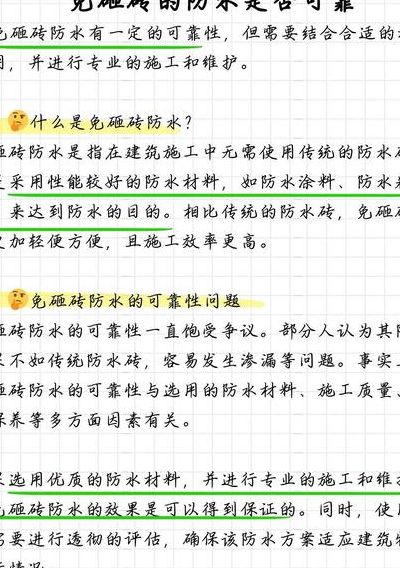 免砸砖的防水是否可靠
免砸砖防水有一定的可靠性，但需要结合合适的
，并进行专业的施工和维护。
🤔什么是免砸砖防水？
砸砖防水是指在建筑施工中无需使用传统的防水
采用性能较好的防水材料，如防水涂料、防水
，来达到防水的目的。相比传统的防水砖，免砸
加轻便方便，且施工效率更高。
🤔免砸砖防水的可靠性问题
砸砖防水的可靠性一直饱受争议。部分人认为其防
不如传统防水砖，容易发生渗漏等问题。事实
砸砖防水的可靠性与选用的防水材料、施工质量、
保养等多方面因素有关。
选用优质的防水材料，并进行专业的施工和维护
砸砖防水的效果是可以得到保证的。同时，使
要进行透彻的评估，确保该防水方案适应建筑物
情况